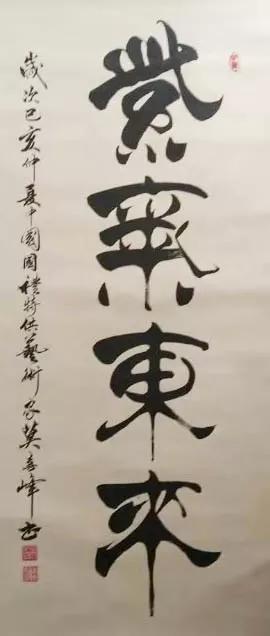 紫氣東來
歲次己亥仲夏中國國禮特供藝術家莫喜峰書